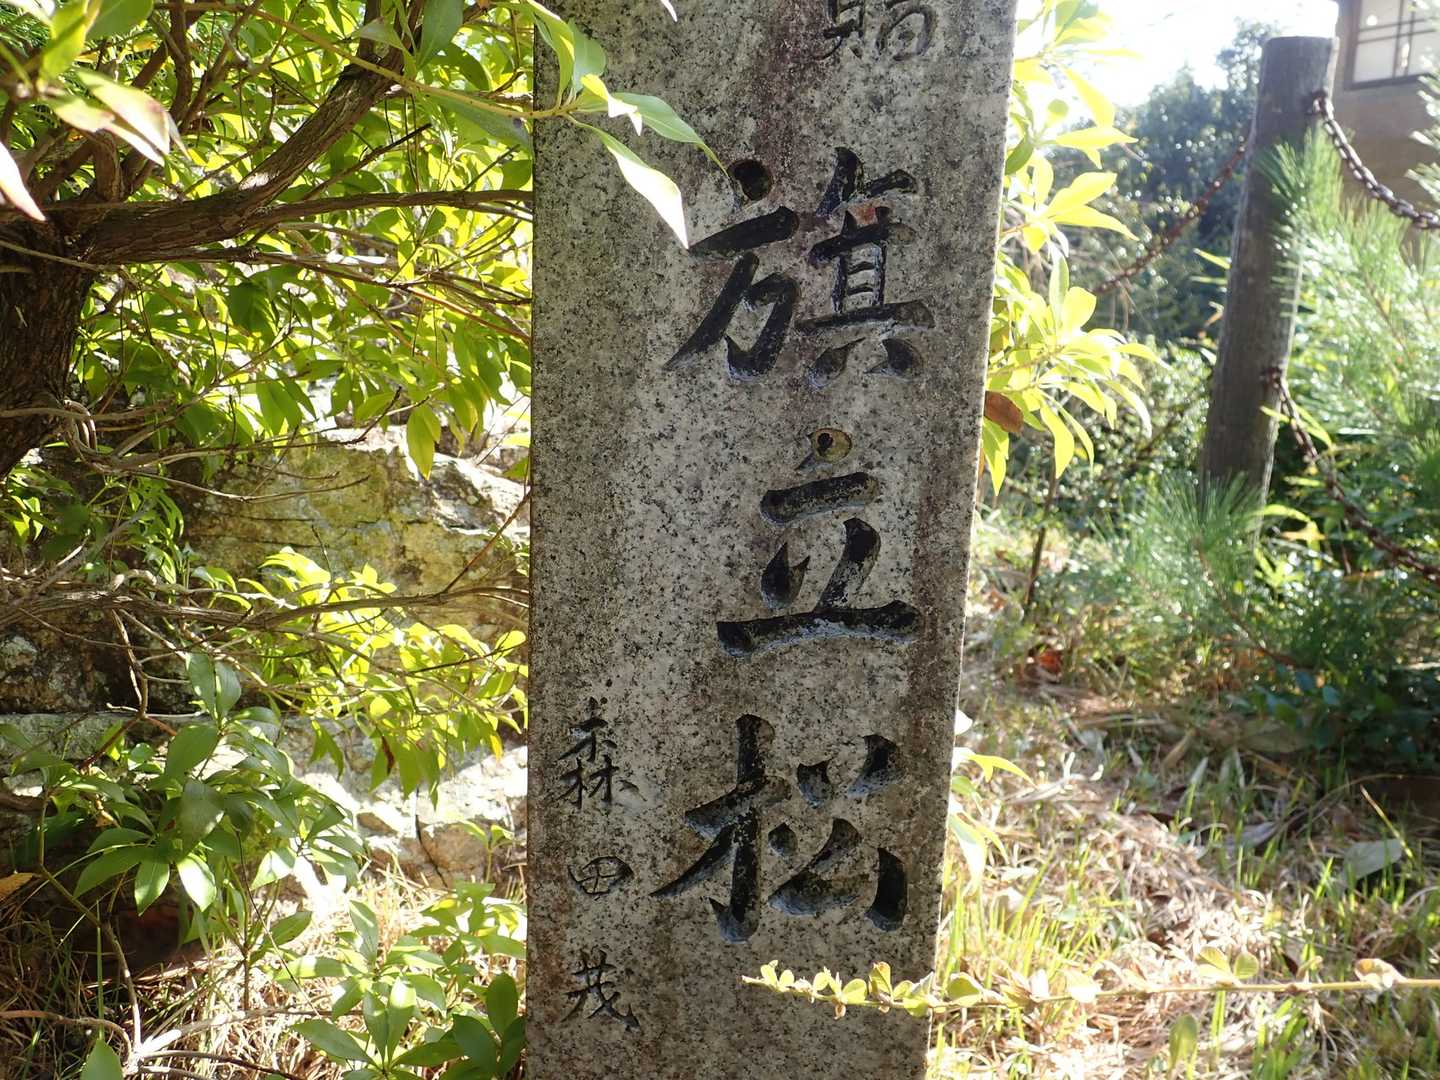 旗立松
森田茂